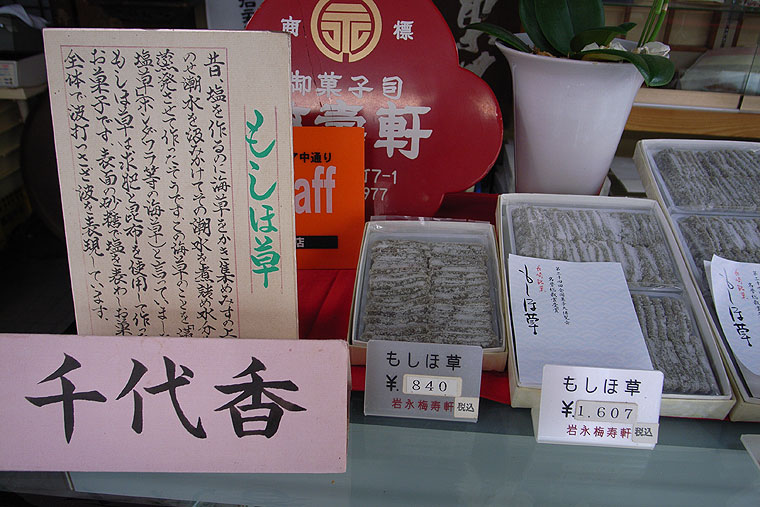 商 標
御菓子司
寿軒
中通り
丁7-1
977
aff
店
もしほ草
昔、塩を作るのに海草をかき集めみすの上
のせ潮水を汲みかけてその潮水を煮鉄水分
蒸発させて作ったそうです。この海草のことを「藻
塩草」(ホンダワラ等の海草)と言っていました。
もしほ草は求肥に昆布を使用して作る
お菓子です。表面の砂糖で塩を表わ、お菓
全体で波打つさざ波を表現しています。
千代香
長崎銘菓
もしほ草
名誉総裁賞受賞
もしほ草
¥840
岩永梅寿軒 税込
もしほ草
¥1,607
岩永梅寿軒 税込
長崎銘菓
もしほ草